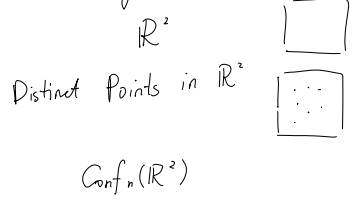 ℝ²
Distinct Points in ℝ²
Confₙ(ℝ²)